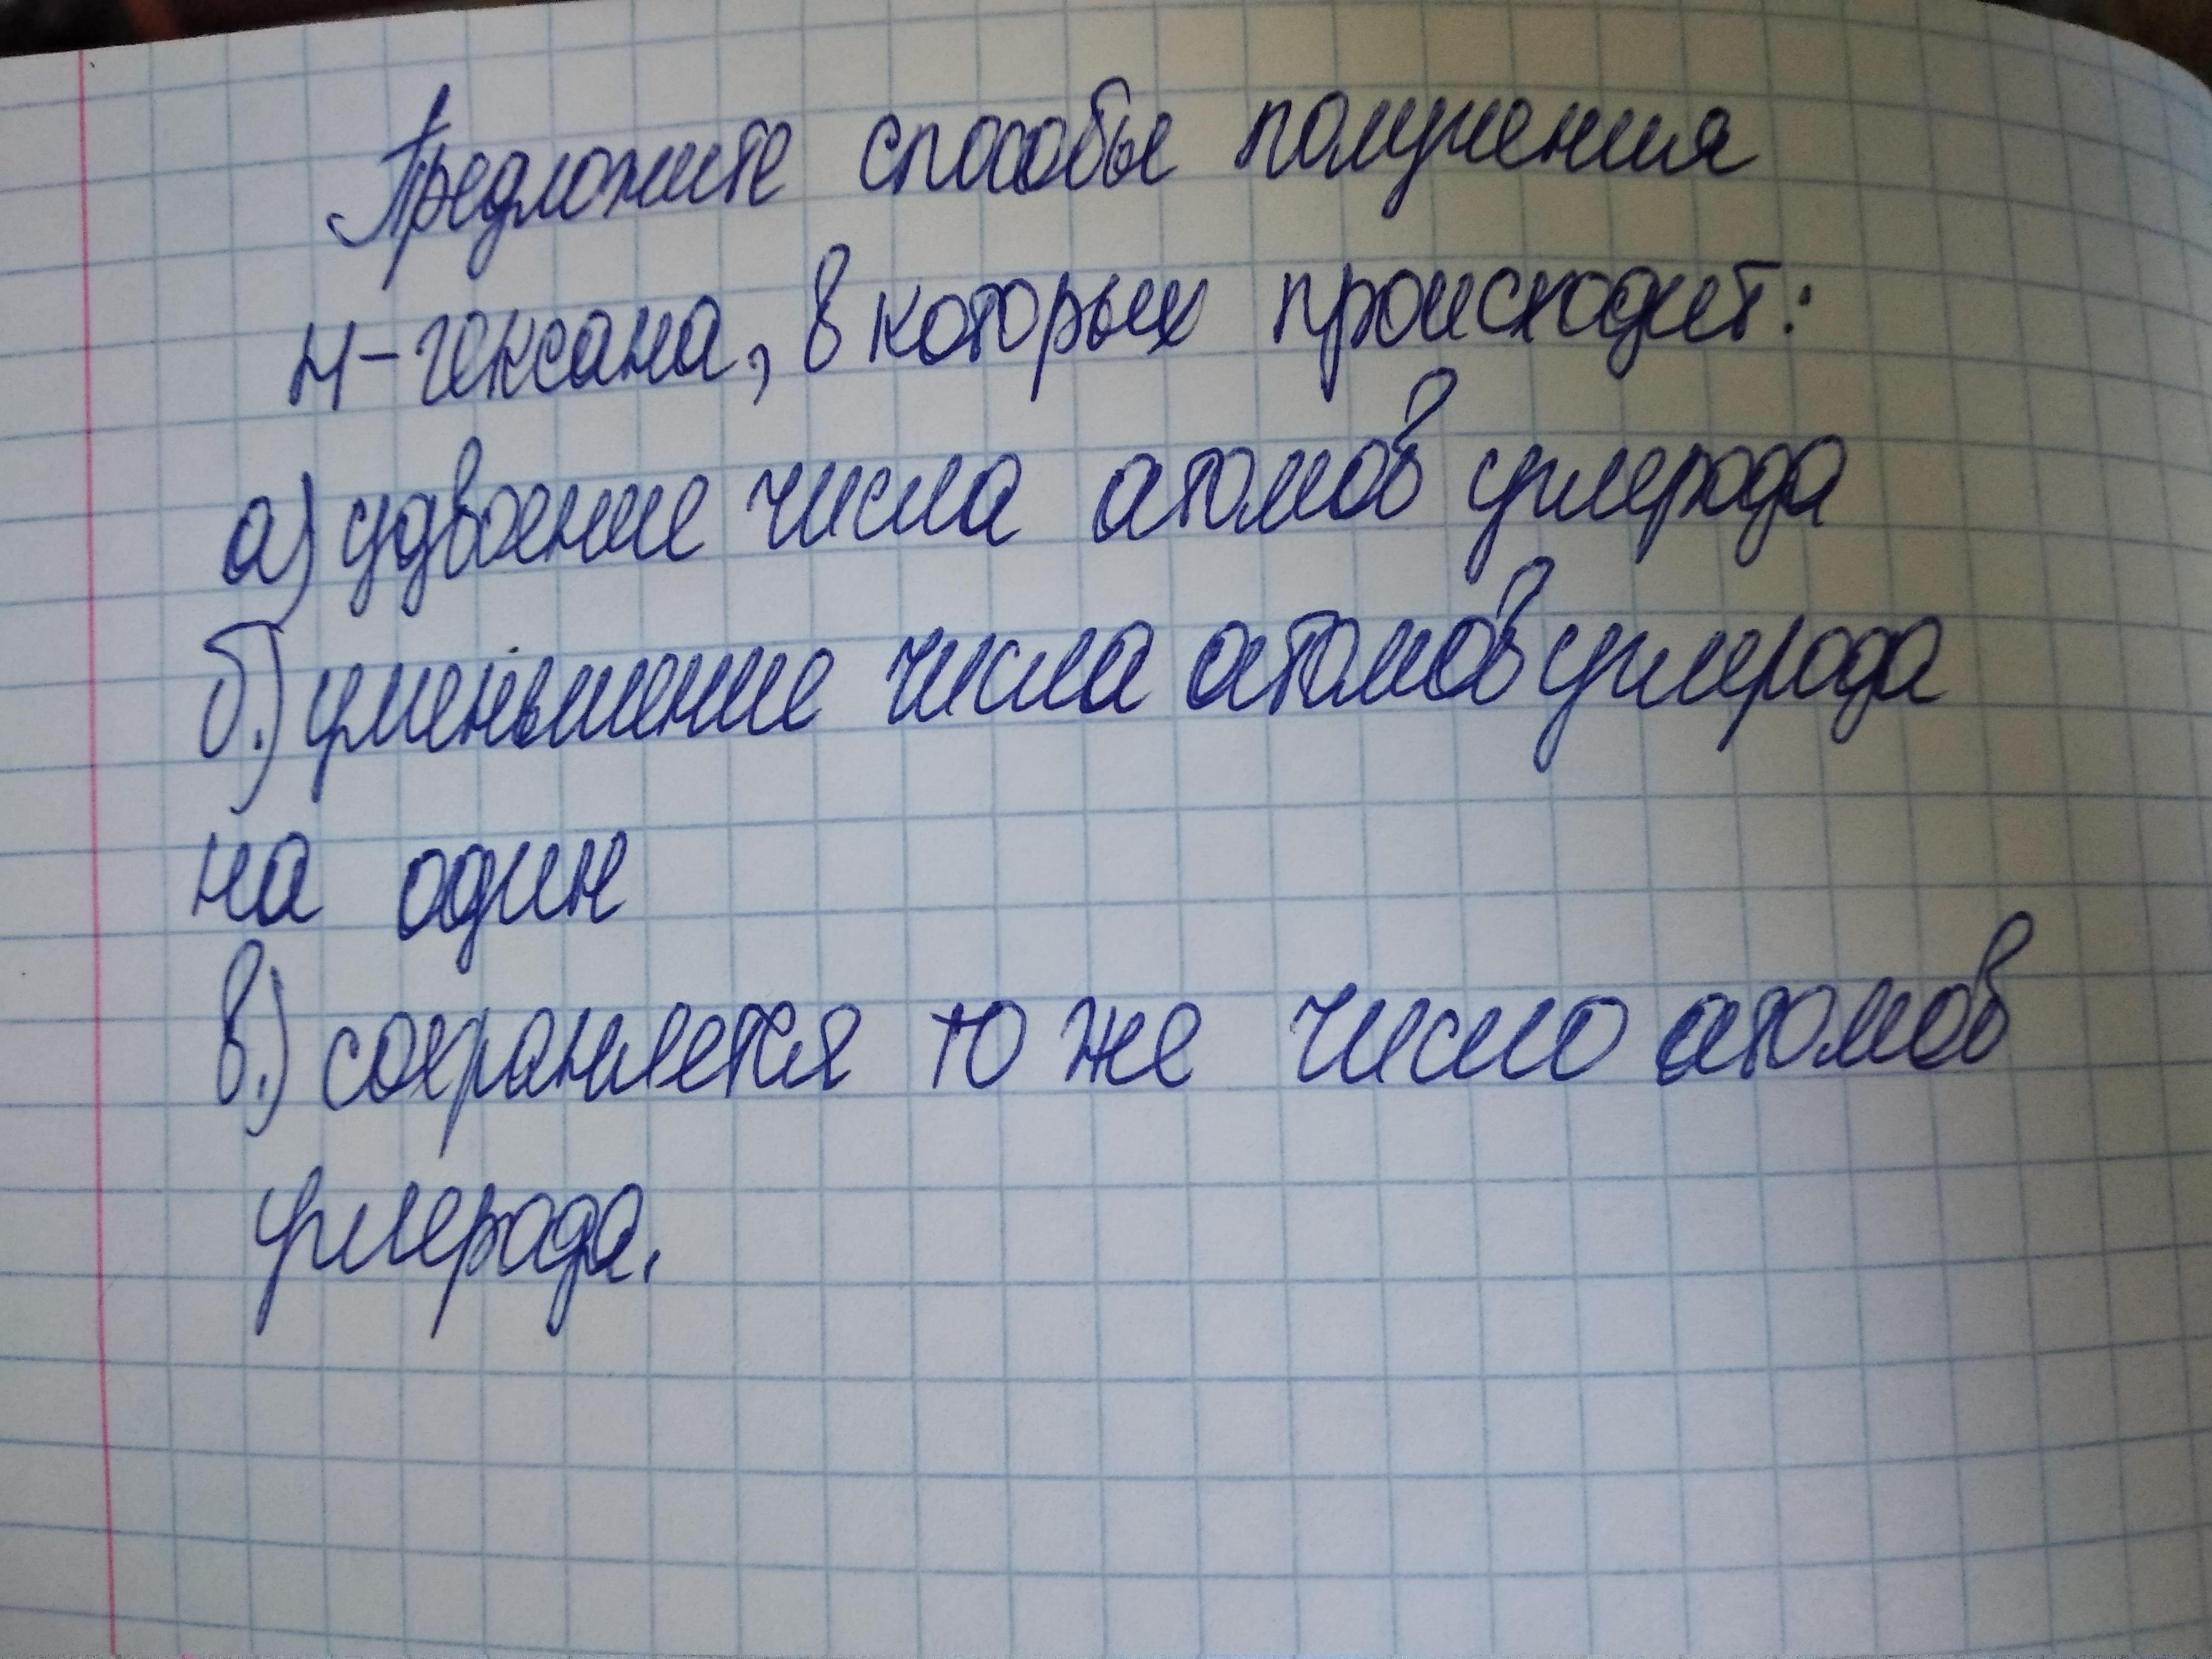 Предложите способы получения
н-гексана, в которых происходит:
а) удвоение числа атомов углерода
б.) уменьшение числа атомов углерода
на один
в.) сохраняется то же число атомов
углерода.